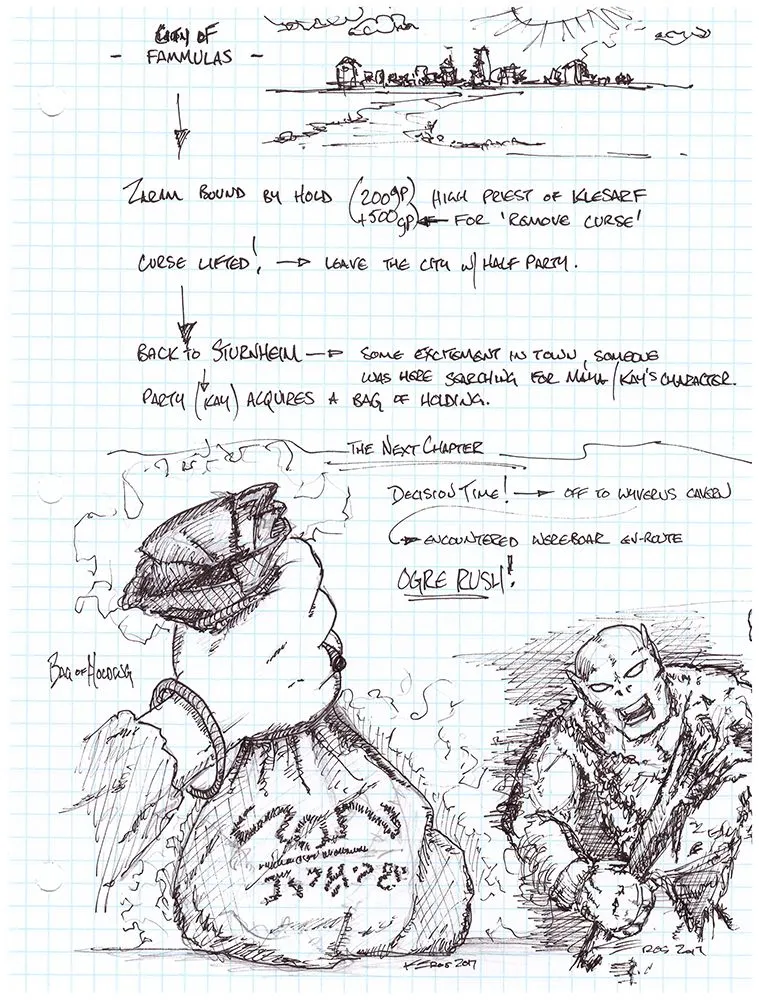 CITY OF
- FAMMULAS -
ZARAM BOUND BY HOLD (200gp +500gp) HIGH PRIEST OF KLESARF
FOR 'REMOVE CURSE'
CURSE LIFTED! → LEAVE THE CITY W/ HALF PARTY.
BACK TO STURNHEIM → SOME EXCITEMENT IN TOWN, SOMEONE
WAS HERE SEARCHING FOR MAHA/KAY'S CHARACTER.
PARTY (KAY) ACQUIRES A BAG OF HOLDING.
THE NEXT CHAPTER
DECISION TIME! → OFF TO WYVERNS CAVERN
ENCOUNTERED WEREBOAR EN-ROUTE
OGRE RUSH!
BAG OF HOLDING
ROS 2017
ROS 2017